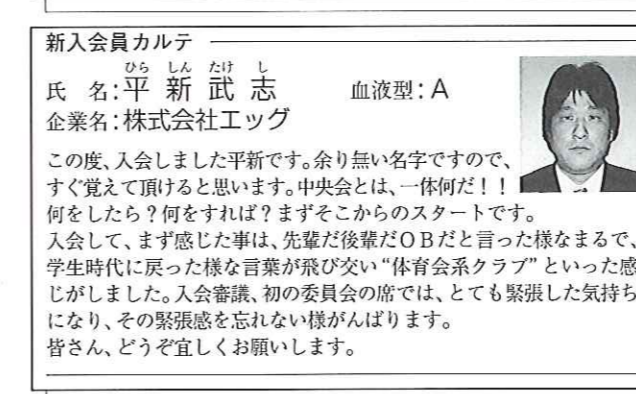 新入会員カルテ
ひら しん たけ し
氏 名:平 新 武 志 血液型:A
企業名:株式会社エッグ
この度、入会しました平新です。余り無い名字ですので、
すぐ覚えて頂けると思います。中央会とは、一体何だ！！
何をしたら？何をすれば？まずそこからのスタートです。
入会して、まず感じた事は、先輩だ後輩だＯＢだと言った様なまるで、
学生時代に戻った様な言葉が飛び交い“体育会系クラブ”といった感
じがしました。入会審議、初の委員会の席では、とても緊張した気持ち
になり、その緊張感を忘れない様がんばります。
皆さん、どうぞ宜しくお願いします。